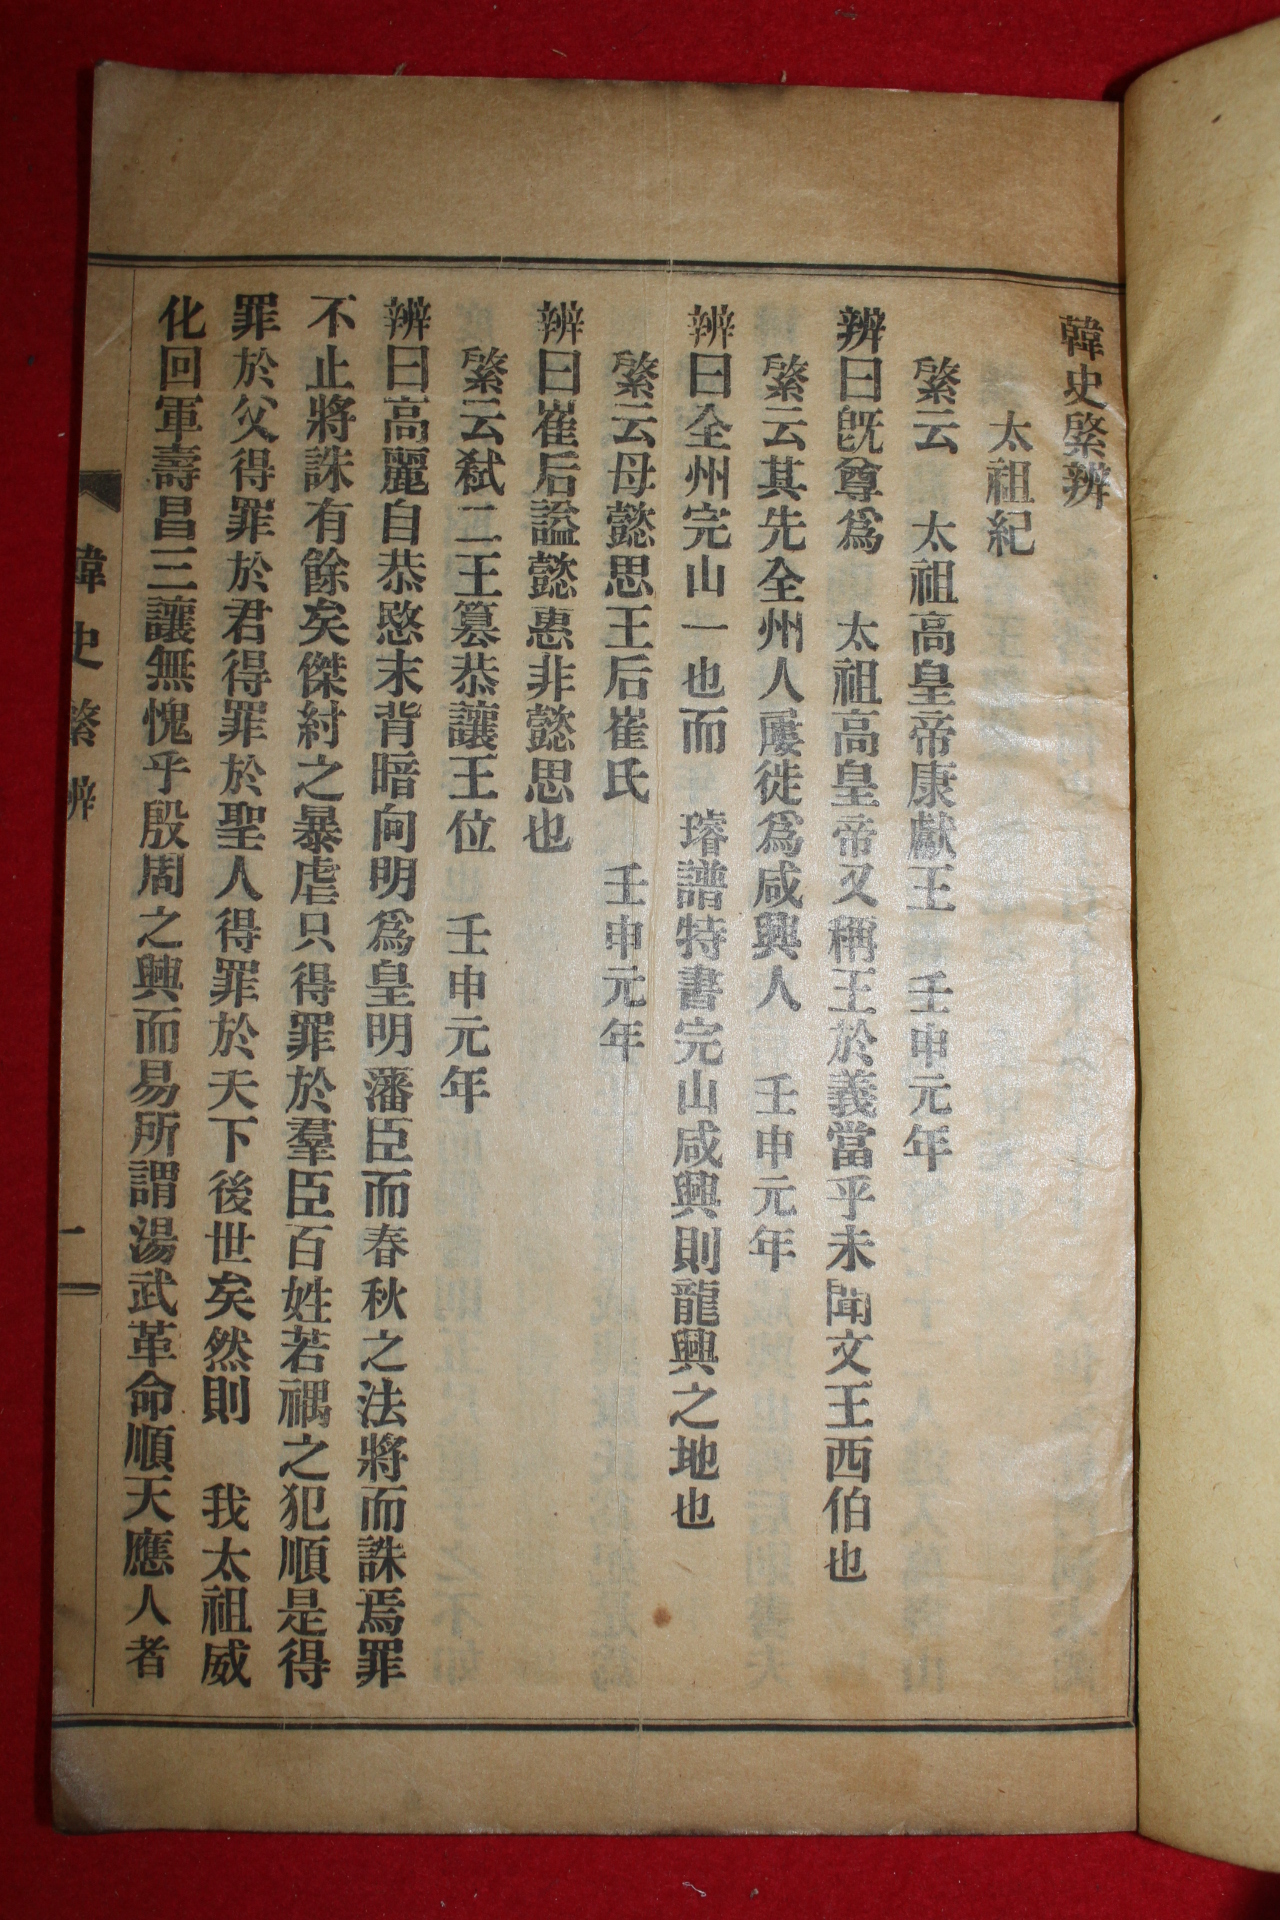 韓史綮辨
太祖紀
綮云　太祖高皇帝康獻王　壬申元年
辨曰旣尊爲　太祖高皇帝又稱王於義當乎未聞文王西伯也
綮云其先全州人屢徙爲咸興人　壬申元年
辨曰全州完山一也而　璿譜特書完山咸興則龍興之地也
綮云母懿思王后崔氏　壬申元年
辨曰崔后謚懿惠非懿思也
綮云弑二王簒恭讓王位　壬申元年
辨曰高麗自恭愍末背暗向明爲皇明藩臣而春秋之法將而誅焉罪
不止將誅有餘矣傑紂之暴虐只得罪於羣臣百姓若禑之犯順是得
罪於父得罪於君得罪於聖人得罪於天下後世矣然則　我太祖威
化回軍壽昌三讓無愧乎殷周之興而易所謂湯武革命順天應人者
韓史綮辨　一